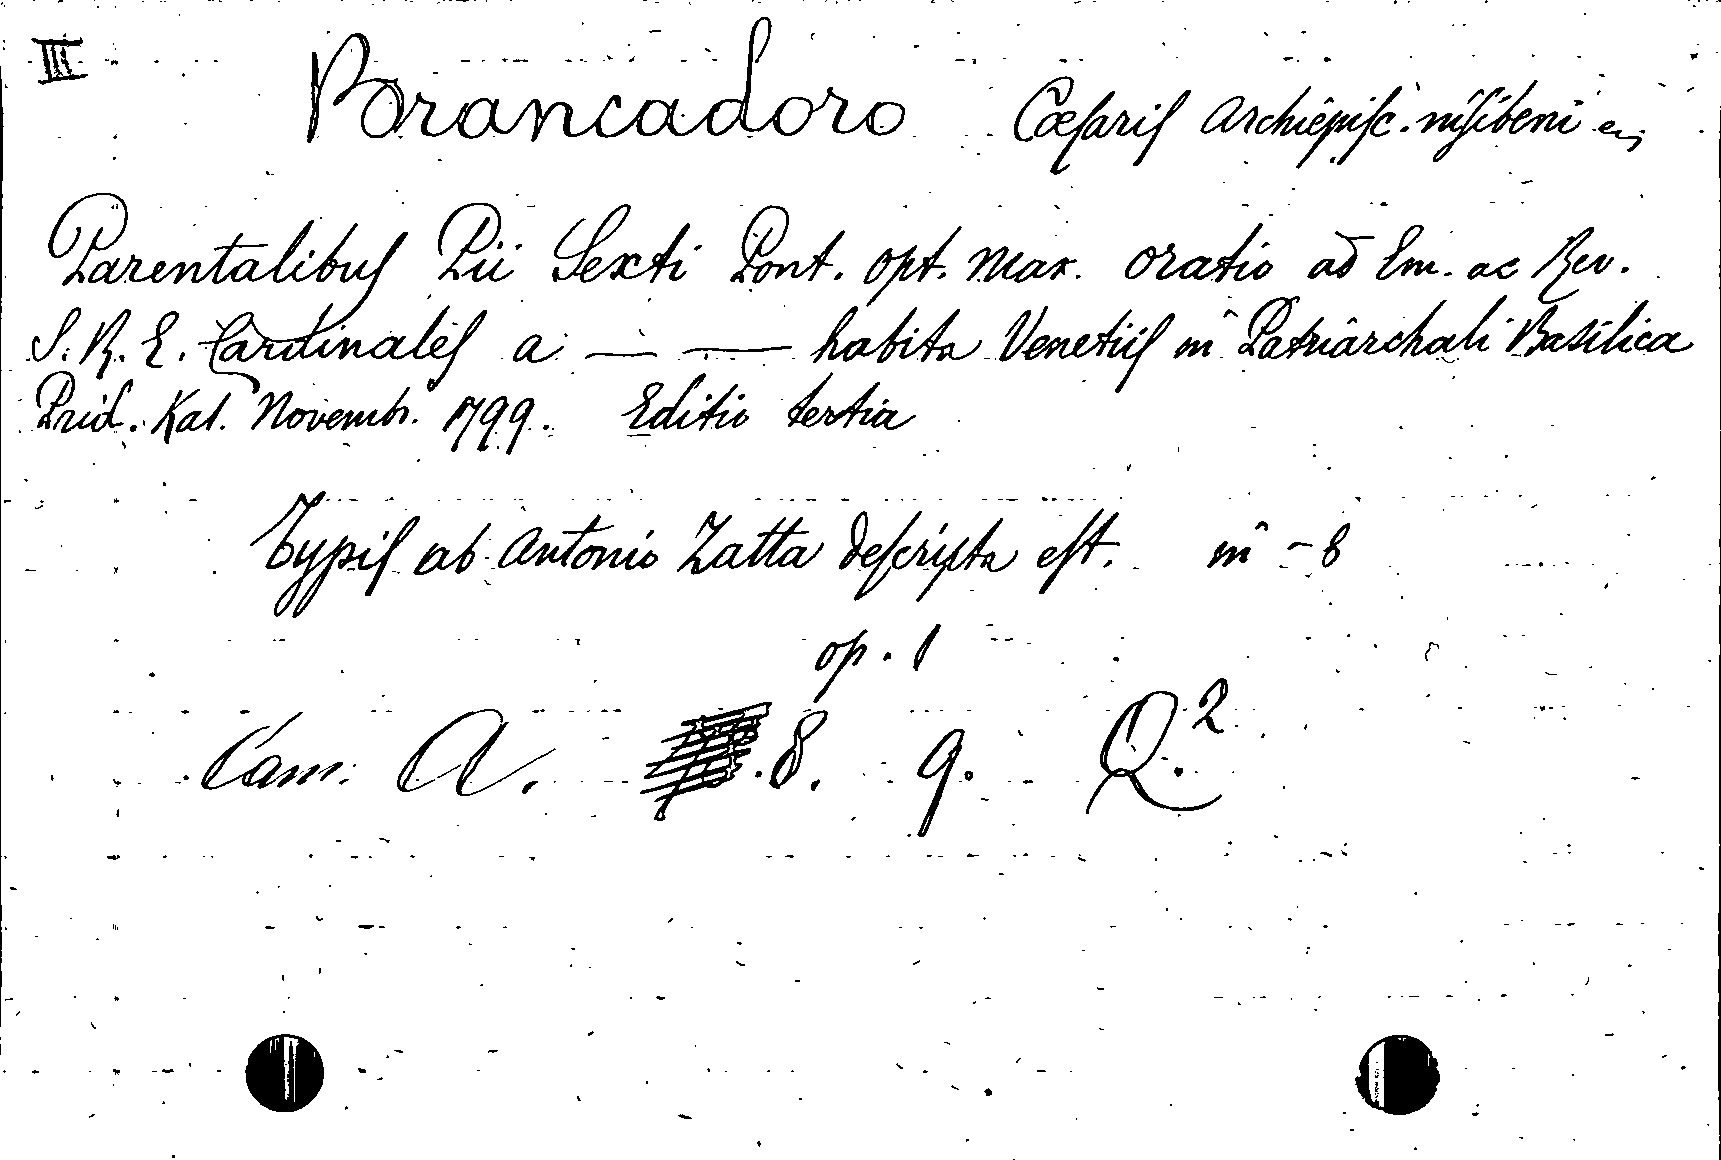 III
Brancadoro Cæsaris Archiepisc. nisibeni in
Parentalibus Pii Sexti Pont. opt. Max. oratio ad Em. ac Rev.
S. R. E. Cardinales a — — habita Venetiis in Patriarchali Basilica
Prid. Kal. Novemb. 1799. Editio tertia
Typis ab Antonio Zatta descripta est. in - 8
op. 1
Cam. A. 8. 9. Q.2